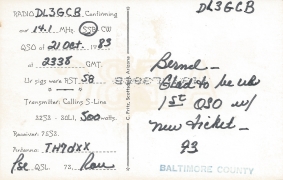 DL3GCB
RADIO DL3GCB Confirming
our 14.1 MHz. SSB CW
QSO of 21 Oct 1983
at 2338 GMT.
Ur sigs were RST 58
Transmitter: Collins S-Line
32S3 - 30L1, 500 watts.
Receiver: 75S3.
Antenna: TH7DXX
Pse QSL. 73, Ron
Bernd -
Glad to be ur
1st QSO w/
new ticket -
73
BALTIMORE COUNTY